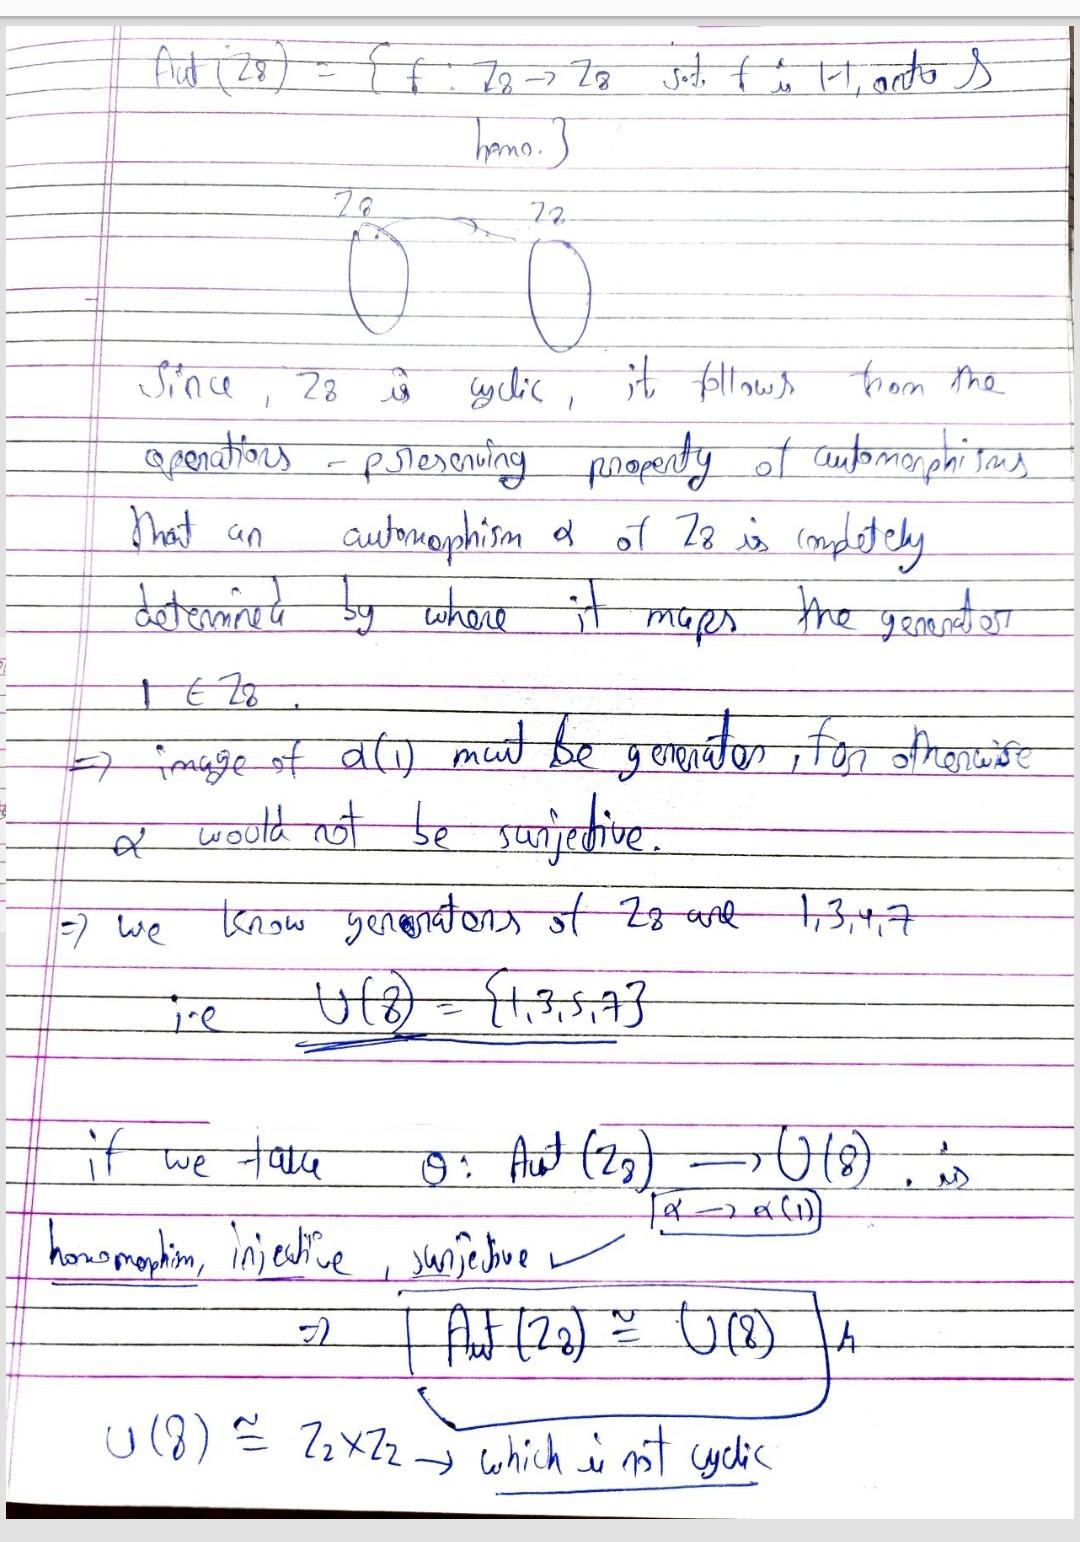 Aut (Z8) = { f : Z8 → Z8 s.t. f is 1-1, onto &
homo. }
Z8 Z8
Since, Z8 is cyclic, it follows from the
operations - preserving property of automorphisms
that an automophism α of Z8 is completely
determined by where it maps the generator
1 ∈ Z8 .
⇒ image of α(1) must be generator, for otherwise
α would not be surjective.
⇒ we know generators of Z8 are 1,3,4,7
i.e U(8) = {1,3,5,7}
if we take θ: Aut (Z8) → U(8) . is
α → α(1)
homomorphism, injective, surjective ✓
⇒ Aut (Z8) ≅ U(8)
U(8) ≅ Z2×Z2 → which is not cyclic